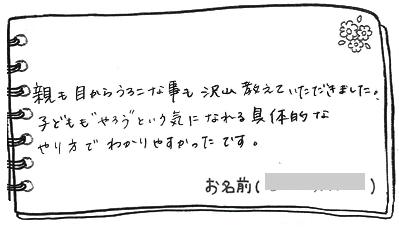 親も目からうろこな事も沢山教えていただきました。
子どもも"やろう"という気になれる具体的な
やり方でわかりやすかったです。
お名前(　　　　)